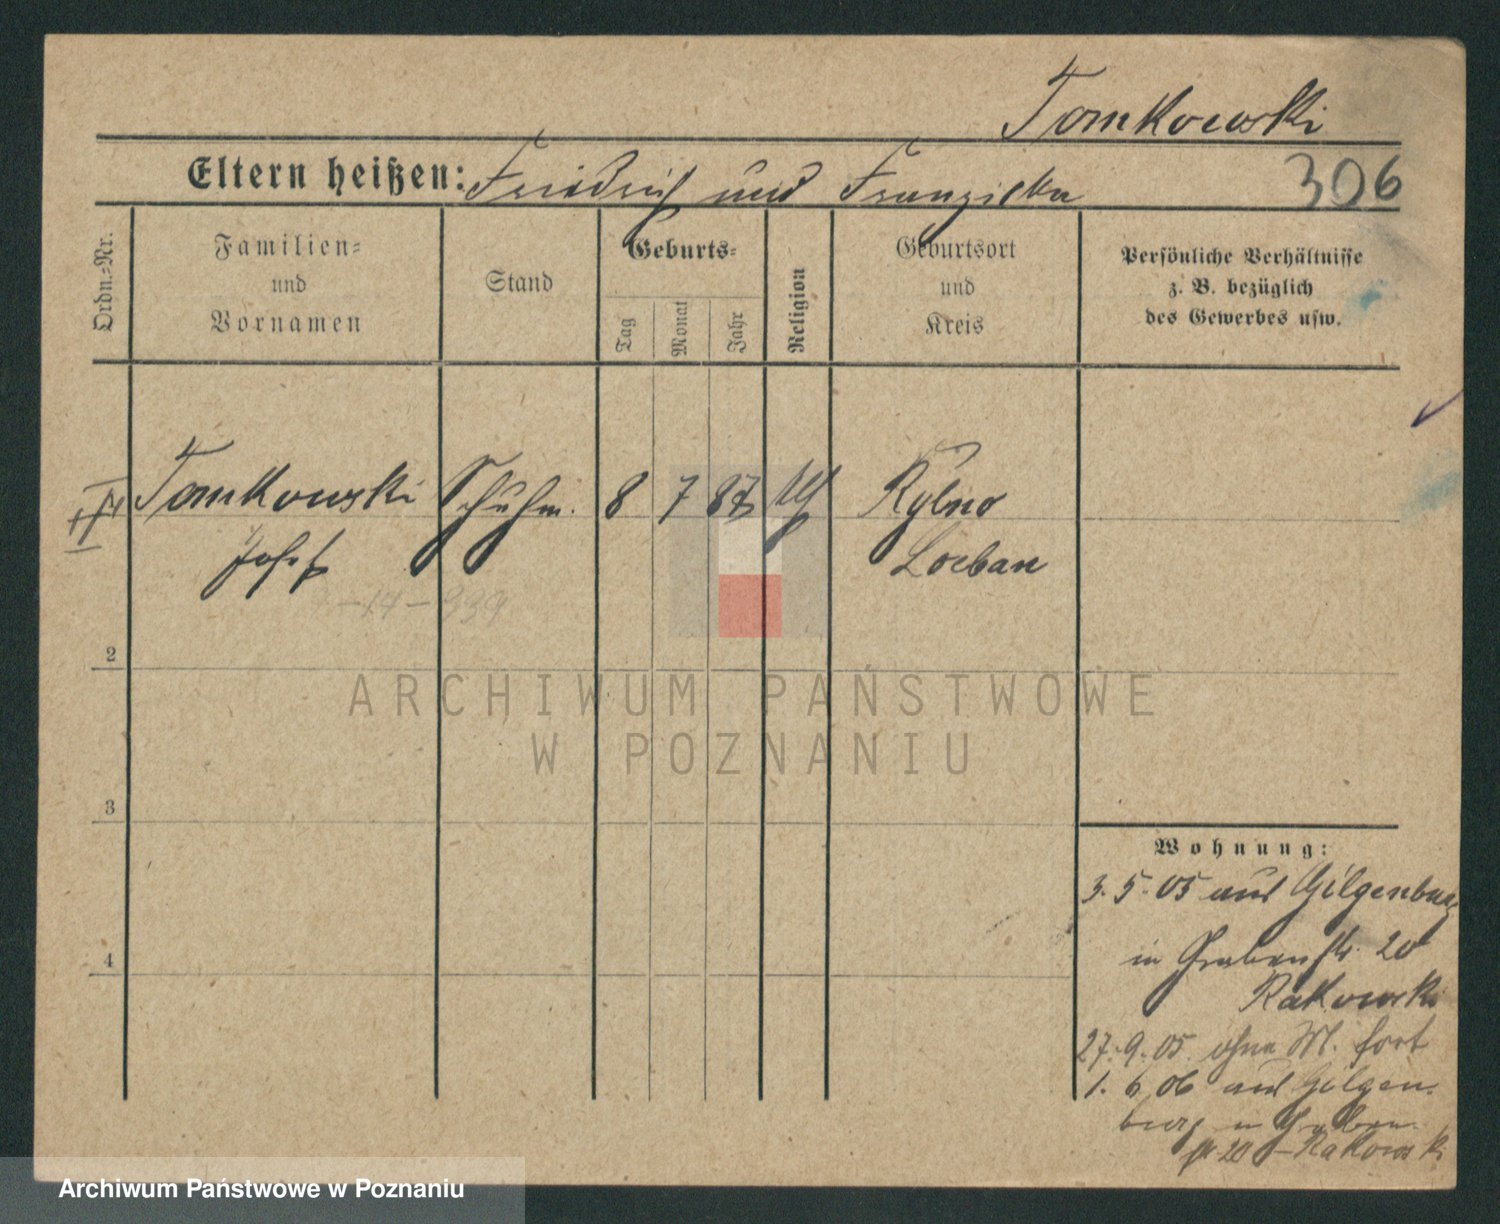 Tomkowski
Eltern heißen: Friedrich und Franziska
306
Ordn.=Nr.
Familien=
und
Vornamen
Stand
Geburts=
Tag
Monat
Jahr
Religion
Geburtsort
und
Kreis
Persönliche Verhältnisse
z. B. bezüglich
des Gewerbes usw.
Tomkowski Schuhm. 8 7 87 Rybno
Josef Loebau
-14-339
2
3
4
Wohnung:
3.5.05 aus Gilgenburg
in Grabenstr. 20
Rakowski
27.9.05 ohne M. fort
1. 6 06 aus Gilgen-
burg in Graben-
str 20 - Rakowski
ARCHIWUM PAŃSTWOWE
W POZNANIU
Archiwum Państwowe w Poznaniu